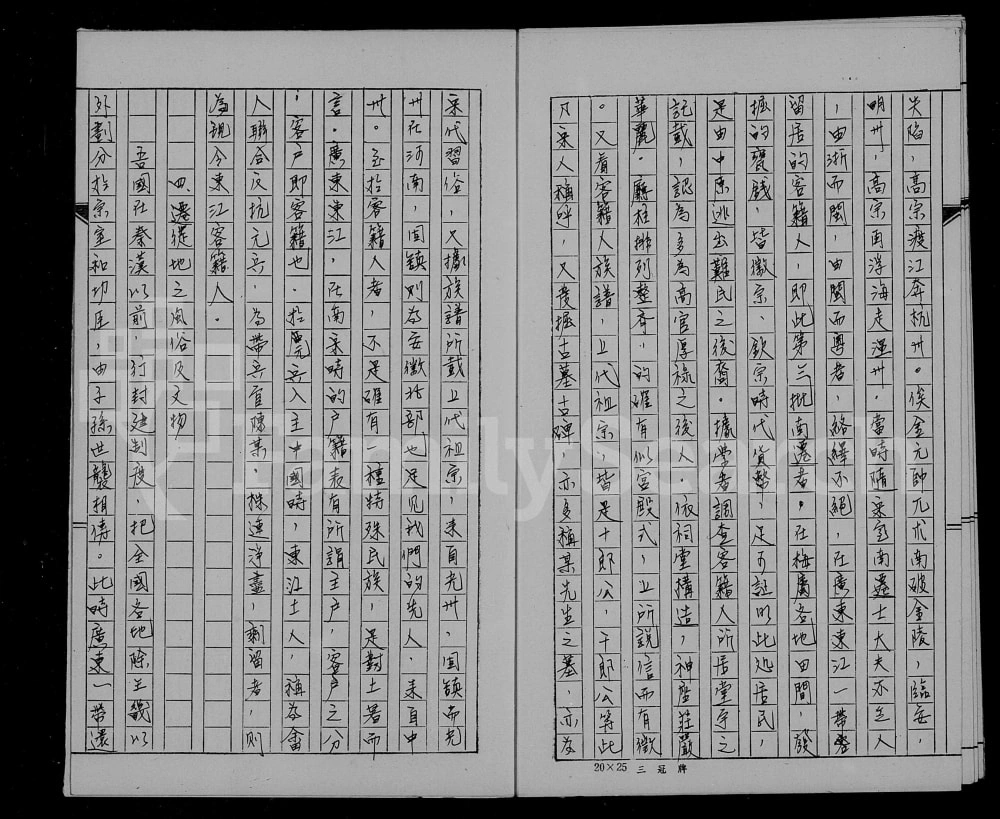 失陷，高宗渡江奔杭州。俟金元帥兀朮南破金陵，臨安，
明州，高宗再浮海走溫州，當時隨宋室南遷士大夫不乏人
，由浙而閩，由閩而粵者，絡繹不絕，在廣東東江一帶
留居的客籍人，即此第三批南遷者。在梅廣各地田間，發
掘的甕錢，皆徽宗、欽宗時代貨幣，足可証明此処居民，
是由中原逃出難民之後裔．據學者調查客籍人所居堂宇之
記載，認為多為高官厚祿之後人．依祠堂構造，神座莊嚴
華麗．廳柱排列整齊，的確有似宮殿式，上所說信而有徵
。又看客籍人族譜，上代祖宗，皆是十郎公，千郎公等此
凡宋人稱呼，又發掘古墓古碑，亦多稱某先生之墓，亦為
宋代習俗，又據族譜所載上代祖宗，來自光州，固鎮而光
州在河南，固鎮則為安徽北部也足見我們的先人，來自中
州。至於客籍人者，不是確有一種特殊民族，是對土著而
言．廣東東江，在南宋時的戶籍表有所謂主戶，客戶之分
，客戶即客籍也．於元兵入主中國時，東江土人，稱為畲
人聯合反抗元兵，為帶兵官陳某．株連淨盡，剩留者，則
為現今東江客籍人．
四．遷徙地之風俗及文物
吾國在秦漢以前，行封建制度．把全國各地除王畿以
外劃分於宗室和功臣，由子孫世襲相傳。此時廣東一帶還
20×25 三冠牌
FamilySearch